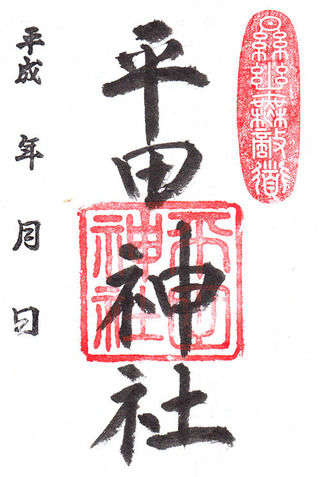 平田神社
平田
神社
平成　年　月　日